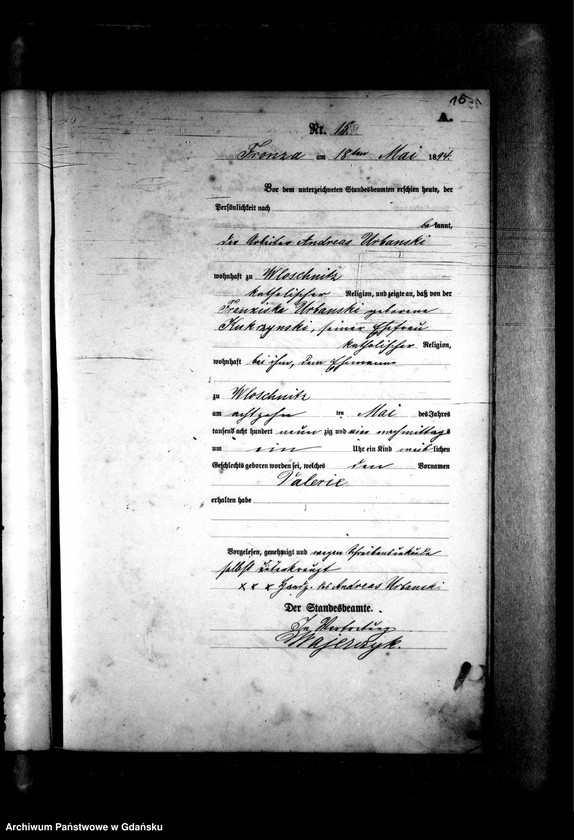 15
A.
Nr. 15.
Fronza am 18ten Mai 1894.
Vor dem unterzeichneten Standesbeamten erschien heute, der
Persönlichkeit nach
be kannt,
der Arbeiter Andreas Urbanski
wohnhaft zu Wloschnitz
katholischer Religion, und zeigte an, daß von der
Franziska Urbanski geborene
Kukczynski, seiner Ehefrau
katholischer Religion,
wohnhaft bei ihm, dem Ehemanne
zu Wloschnitz
am achtzehn ten Mai des Jahres
tausend acht hundert neun zig und vier nachmittags
um ein Uhr ein Kind weib lichen
Geschlechts geboren worden sei, welches den Vornamen
Valerie
erhalten habe
Vorgelesen, genehmigt und wegen Schreibensunkunde
selbst unterkreuzt
x x x Handz. des Andreas Urbanski
Der Standesbeamte.
In Vertretung
Majewszyk.
Archiwum Państwowe w Gdańsku